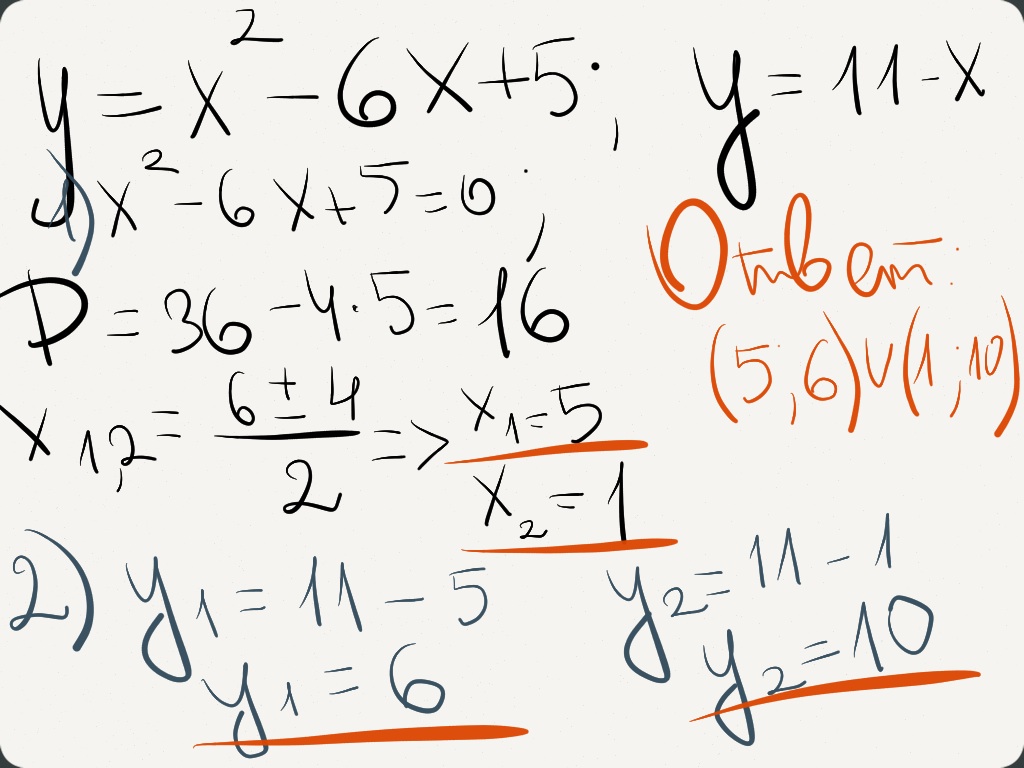 y = x² - 6x + 5; y = 11 - x
1) x² - 6x + 5 = 0;
D = 36 - 4·5 = 16
x₁,₂ = (6 ± 4)/2 => x₁ = 5
x₂ = 1
Ответ:
(5;6)∪(1;10)
2) y₁ = 11 - 5 y₂ = 11 - 1
y₁ = 6 y₂ = 10